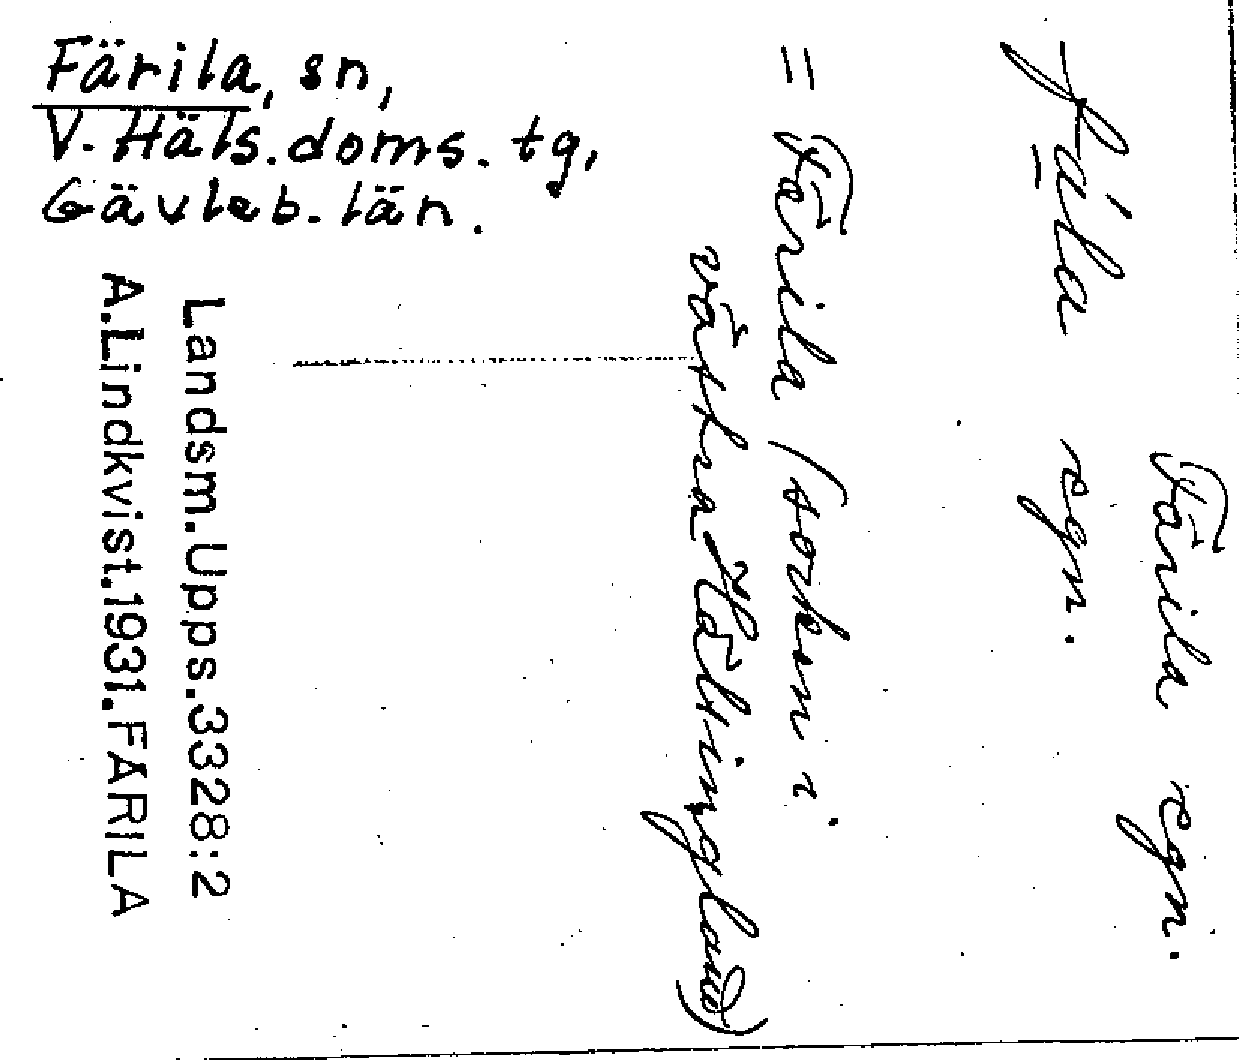 Färila, sn,
V. Häls. doms. tg,
Gävleb. län.
Färila egn.
egn.
= Färila (socken i
västra Hälsingland)
Landsm. Upps. 3328:2
A. Lindkvist. 1931. FÄRILA